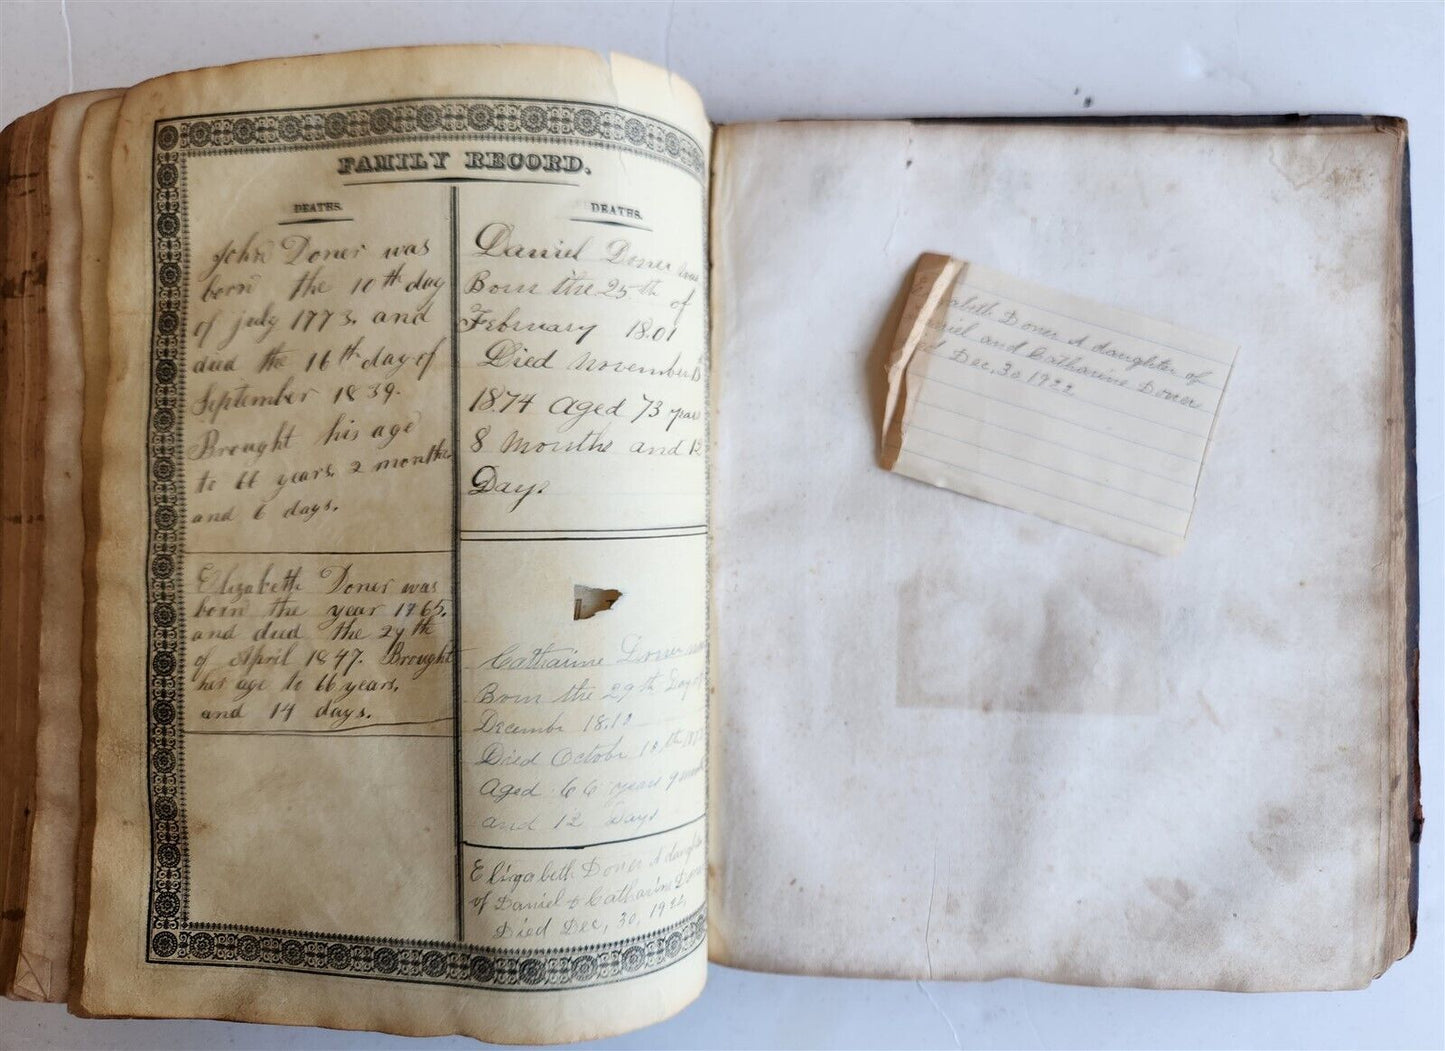 FAMILY RECORD.
DEATHS.
John Doner was
born the 10th day
of july 1773. and
died the 16th day of
September 1839.
Brought his age
to 66 years. 2 months
and 6 days.
Elizabeth Doner was
born the year 1765.
and died the 29th
of April 1847. Brought
her age to 66 years.
and 14 days.
DEATHS.
Daniel Doner was
Born the 25th of
February 1801
Died November
1874 Aged 73 years
8 Months and 12
Days
Catharine Doner was
Born the 29th Day of
Decembr 1810
Died Octobr 10th
Aged 66 years 9
and 12 Days
Elizabeth Doner A daughter
of Daniel & Catharine
Died Dec, 30, 1922,
Elizabeth Doner A daughter of
Daniel and Catharine Doner
Dec, 30 1922